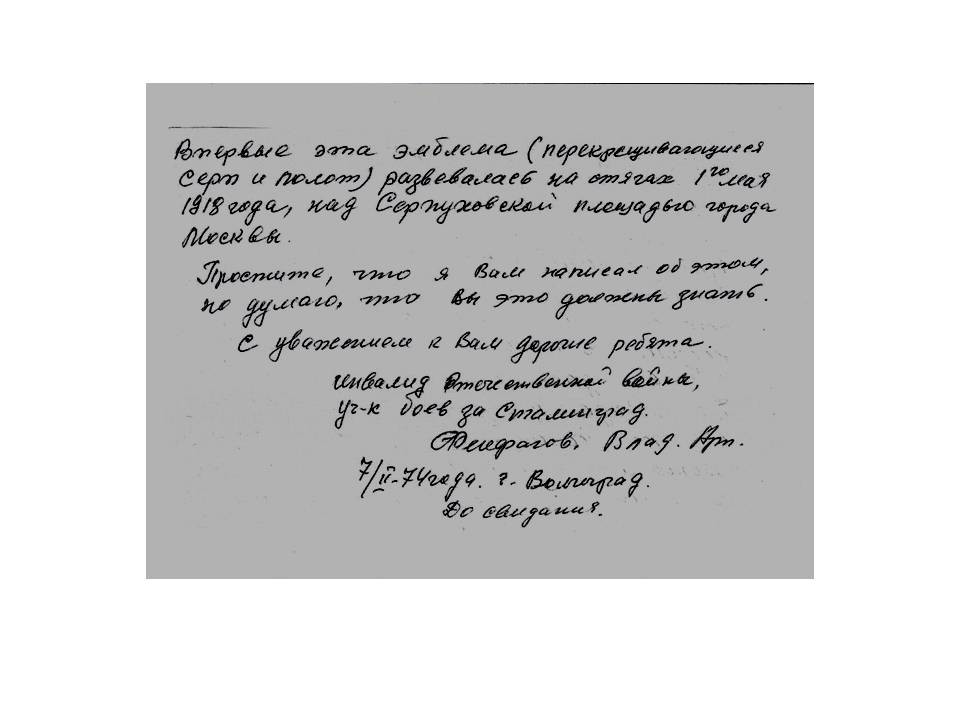 Впервые эта эмблема (перекрещивающиеся
Серп и молот) развевалась на стягах 1го мая
1918 года, над Серпуховской площадью города
Москвы.
Простите, что я Вам написал об этом,
но думаю, что Вы это должны знать.
С уважением к Вам дорогие ребята.
Инвалид Отечественной войны,
уч-к боев за Сталинград.
Влад. Арт.
7/II-74 года. г. Волгоград.
До свидания.